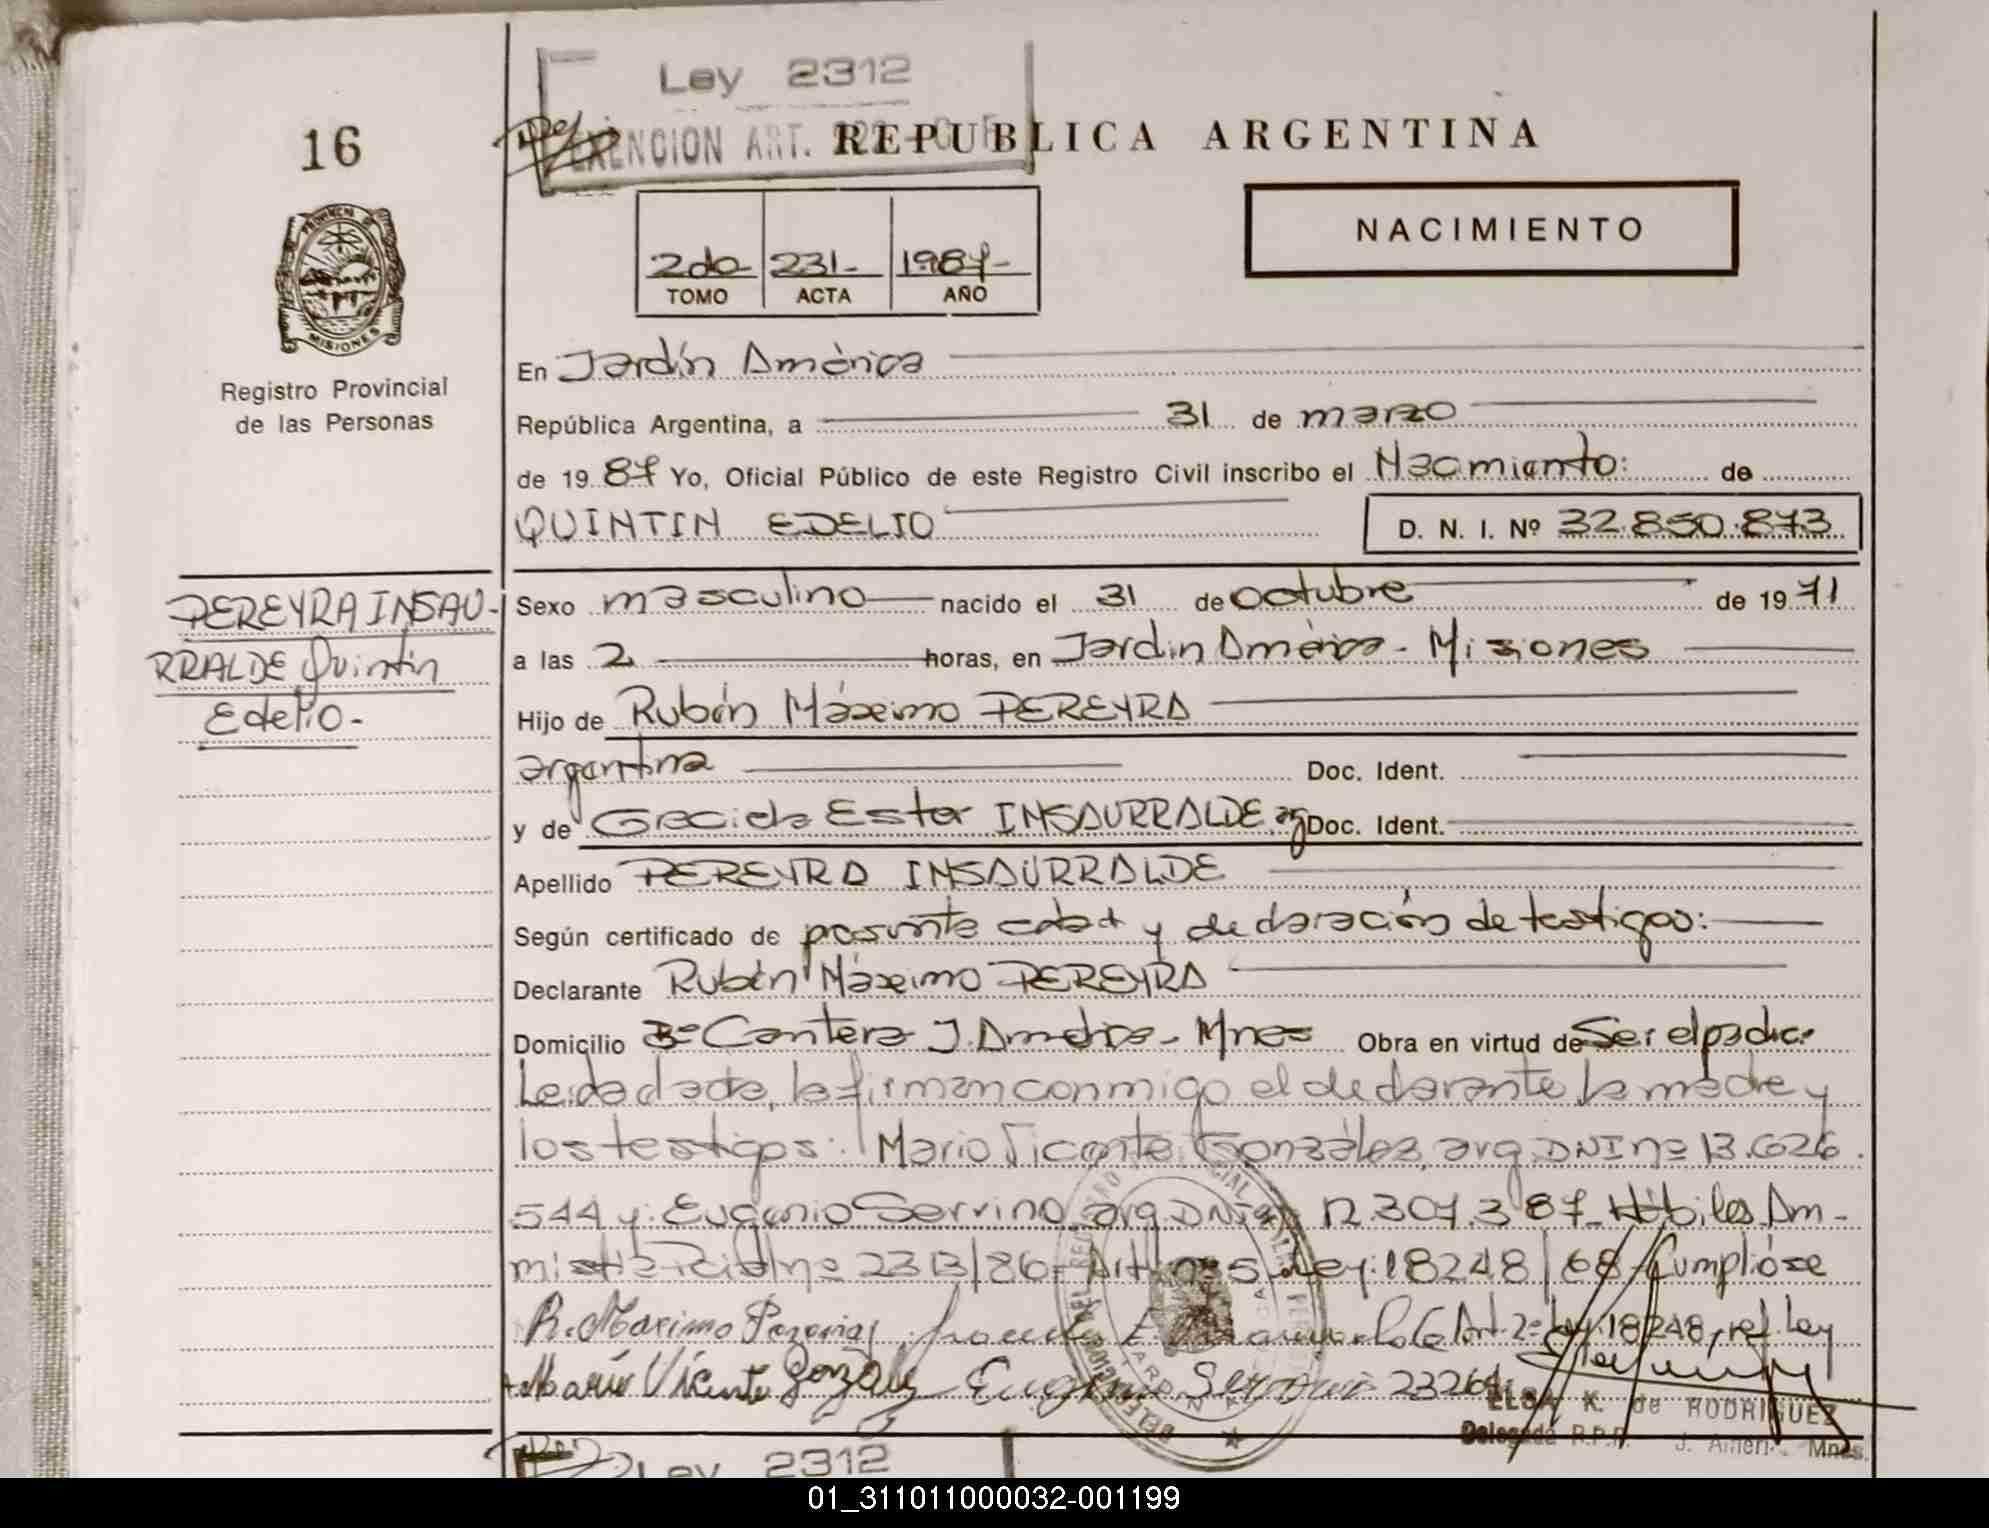 Ley 2312
EXENCION ART.
16
REPUBLICA ARGENTINA
NACIMIENTO
2do 231- 1987-
TOMO ACTA AÑO
PROVINCIA DE MISIONES
Registro Provincial
de las Personas
En Jardín América
República Argentina, a 31 de marzo
de 19 87 Yo, Oficial Público de este Registro Civil inscribo el Nacimiento: de
QUINTIN EDELIO D. N. I. Nº 32.850.873
PEREYRA INSAU-
RRALDE Quintin
Edelio-
Sexo masculino nacido el 31 de octubre de 19 71
a las 2 horas, en Jardín América - Misiones
Hijo de Rubén Máximo PEREYRA
argentina Doc. Ident.
y de Graciela Ester INSAURRALDE arg Doc. Ident.
Apellido PEREYRA INSAURRALDE
Según certificado de y declaración de testigos:
Declarante Rubén Máximo PEREYRA
Domicilio Bº Cantera J. América - Mnes Obra en virtud de Ser el padre
Leida el acta, la firman conmigo el declarante la madre y
los testigos: Mario Vicente González, arg. DNI nº 13.626.
544 y Eugenio Serrino arg. DNI nº 12.307.387 Hábiles Am-
nistía Pcial nº 2313/86- Art nº 5 Ley: 18248/68 Cumplióse
R. Maximo Pereyra Art. 2º Ley. 18248, ref. Ley
Mario Vicente González Eugenio 23264
ELSA K. de RODRIGUEZ
Delegada R.P.P. J. Amér. Mnes.
Ley 2312
01_311011000032-001199